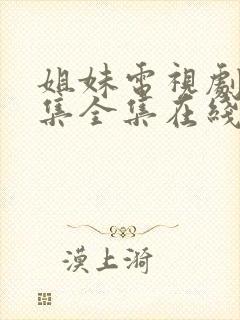 姐妹電視劇
集全集在綫
漠上漪